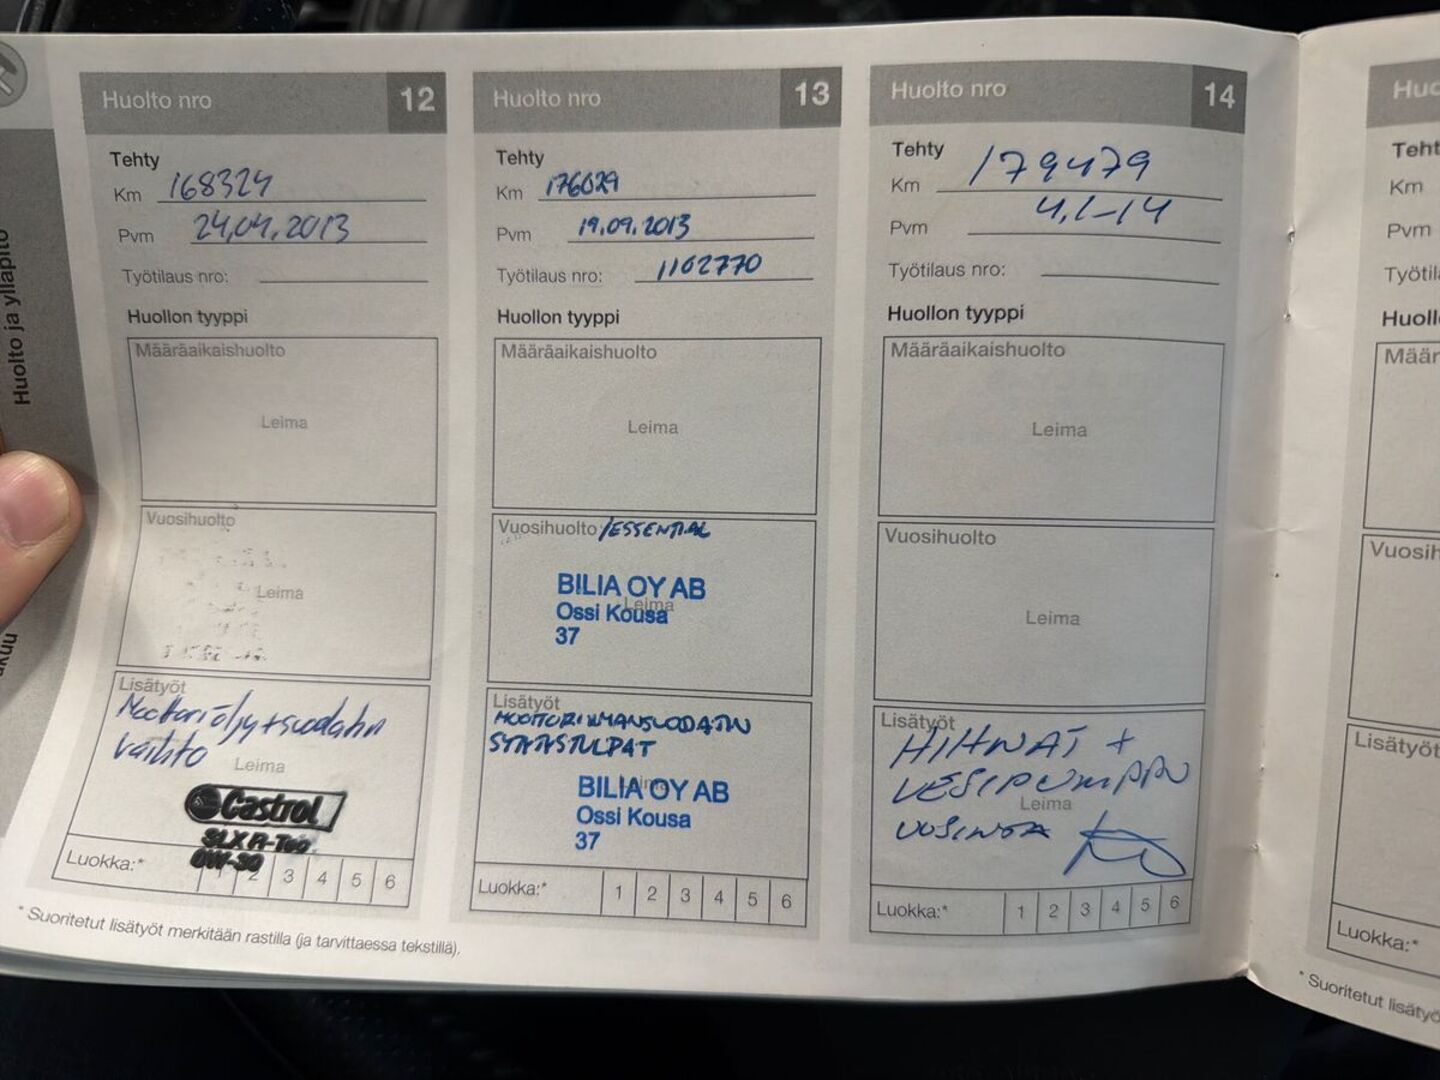 Huolto ja ylläpito
Huolto nro 12
Tehty
Km 168324
Pvm 24.04.2013
Työtilaus nro:
Huollon tyyppi
Määräaikaishuolto
Leima
Vuosihuolto
Leima
Lisätyöt
Moottoriöljy+suodatin
vaihto
Leima
Castrol
SLX
0W-30
Luokka:* 2 3 4 5 6
* Suoritetut lisätyöt merkitään rastilla (ja tarvittaessa tekstillä).
Huolto nro 13
Tehty
Km 176029
Pvm 19.09.2013
Työtilaus nro: 1162770
Huollon tyyppi
Määräaikaishuolto
Leima
Vuosihuolto /ESSENTIAL
BILIA OY AB
Leima
Ossi Kousa
37
Lisätyöt
MOOTTORINILMANSUODATIN
SYTYTYSTULPAT
BILIA OY AB
Ossi Kousa
37
Luokka:* 1 2 3 4 5 6
Huolto nro 14
Tehty
Km 179479
Pvm 4.1-14
Työtilaus nro:
Huollon tyyppi
Määräaikaishuolto
Leima
Vuosihuolto
Leima
Lisätyöt
HIHNAT +
VESIPUMPPU
Leima
UUSINTA
Luokka:* 1 2 3 4 5 6
Km
Pvm
Luokka:*